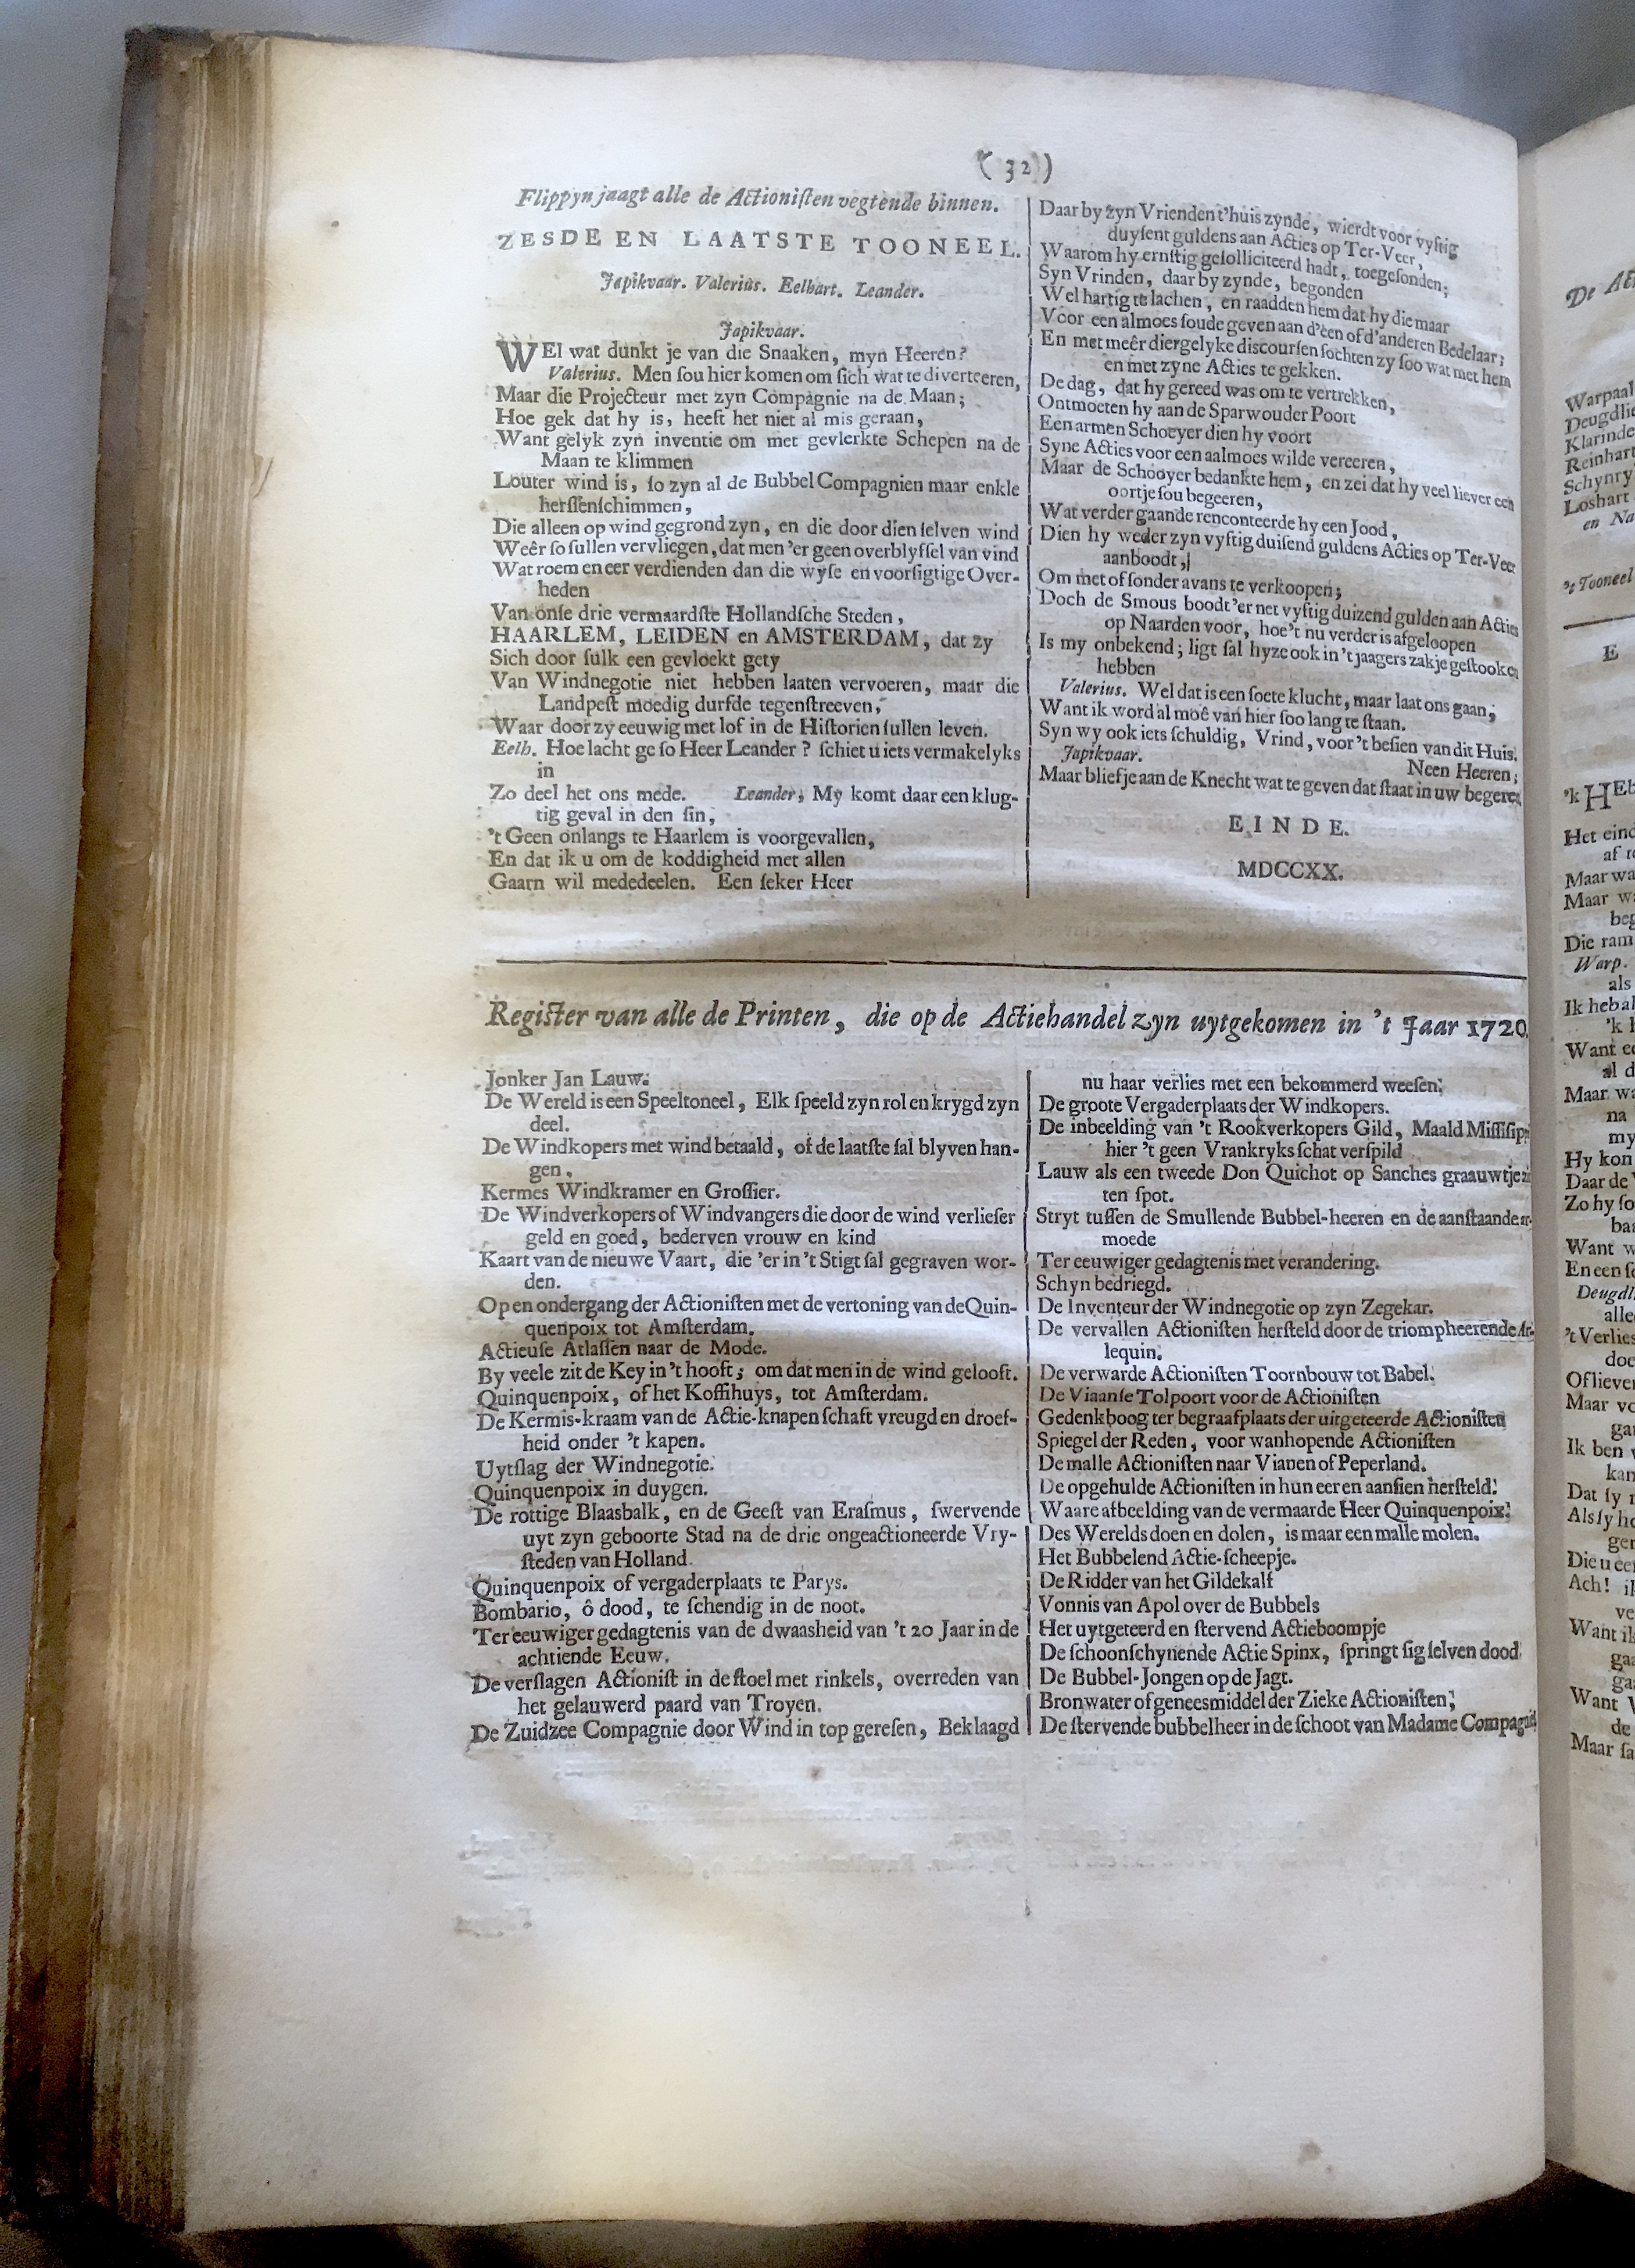 ( 32 )
Flippyn jaagt alle de Actioniſten vegtende binnen.
ZESDE EN LAATSTE TOONEEL.
Japikvaar. Valerius. Eelhart. Leander.
Japikvaar.
WEl wat dunkt je van die Snaaken, myn Heeren?
Valerius. Men ſou hier komen om ſich wat te diverteeren,
Maar die Projecteur met zyn Compagnie na de Maan;
Hoe gek dat hy is, heeft het niet al mis geraan,
Want gelyk zyn inventie om met gevlerkte Schepen na de
Maan te klimmen
Louter wind is, ſo zyn al de Bubbel Compagnien maar enkle
herſſenſchimmen,
Die alleen op wind gegrond zyn, en die door dien ſelven wind
Weêr ſo ſullen vervliegen, dat men 'er geen overblyfſel van vind
Wat roem en eer verdienden dan die wyſe en voorſigtige Over-
heden
Van onſe drie vermaardſte Hollandſche Steden,
HAARLEM, LEIDEN en AMSTERDAM, dat zy
Sich door ſulk een gevloekt gety
Van Windnegotie niet hebben laaten vervoeren, maar die
Landpeſt moedig durfde tegenſtreeven,
Waar door zy eeuwig met lof in de Hiſtorien ſullen leven.
Eelh. Hoe lacht ge ſo Heer Leander? ſchiet u iets vermakelyks
in
Zo deel het ons mede. Leander, My komt daar een klug-
tig geval in den ſin,
't Geen onlangs te Haarlem is voorgevallen,
En dat ik u om de koddigheid met allen
Gaarn wil mededeelen. Een ſeker Heer
Daar by zyn Vrienden t'huis zynde, wierdt voor vyftig
duyſent guldens aan Acties op Ter-Veer,
Waarom hy ernſtig geſolliciteerd hadt, toegeſonden;
Syn Vrinden, daar by zynde, begonden
Wel hartig te lachen, en raadden hem dat hy die maar
Voor een almoes ſoude geven aan d'een of d'anderen Bedelaar;
En met meêr diergelyke discourſen ſochten zy ſoo wat met hem
en met zyne Acties te gekken.
De dag, dat hy gereed was om te vertrekken,
Ontmoeten hy aan de Sparwouder Poort
Een armen Schoeyer dien hy voort
Syne Acties voor een aalmoes wilde vereeren,
Maar de Schooyer bedankte hem, en zei dat hy veel liever een
oortje ſou begeeren,
Wat verder gaande renconteerde hy een Jood,
Dien hy weder zyn vyftig duiſend guldens Acties op Ter-Veer
aanboodt,
Om met of ſonder avans te verkoopen;
Doch de Smous boodt 'er net vyftig duizend gulden aan Acties
op Naarden voor, hoe't nu verder is afgeloopen
Is my onbekend; ligt ſal hyze ook in 't jaagers zakje geſtooken
hebben
Valerius. Wel dat is een ſoete klucht, maar laat ons gaan,
Want ik word al moê van hier ſoo lang te ſtaan.
Syn wy ook iets ſchuldig, Vrind, voor 't beſien van dit Huis.
Japikvaar. Neen Heeren;
Maar blief je aan de Knecht wat te geven dat ſtaat in uw begeren
EINDE.
MDCCXX.
Regiſter van alle de Printen, die op de Actiehandel zyn uytgekomen in 't Jaar 1720.
Jonker Jan Lauw.
De Wereld is een Speeltoneel, Elk ſpeeld zyn rol en krygd zyn
deel.
De Windkopers met wind betaald, of de laatſte ſal blyven han-
gen.
Kermes Windkramer en Groſſier.
De Windverkopers of Windvangers die door de wind verlieſer
geld en goed, bederven vrouw en kind
Kaart van de nieuwe Vaart, die 'er in 't Stigt ſal gegraven wor-
den.
Op en ondergang der Actioniſten met de vertoning van de Quin-
quenpoix tot Amſterdam.
Actieuſe Atlaſſen naar de Mode.
By veele zit de Key in 't hooft; om dat men in de wind gelooft.
Quinquenpoix, of het Koffihuys, tot Amſterdam.
De Kermis-kraam van de Actie-knapen ſchaft vreugd en droef-
heid onder 't kapen.
Uytſlag der Windnegotie.
Quinquenpoix in duygen.
De rottige Blaasbalk, en de Geeſt van Eraſmus, ſwervende
uyt zyn geboorte Stad na de drie ongeactioneerde Vry-
ſteden van Holland.
Quinquenpoix of vergaderplaats te Parys.
Bombario, ô dood, te ſchendig in de noot.
Ter eeuwiger gedagtenis van de dwaasheid van 't 20 Jaar in de
achtiende Eeuw.
De verſlagen Actioniſt in de ſtoel met rinkels, overreden van
het gelauwerd paard van Troyen.
De Zuidzee Compagnie door Wind in top gereſen, Beklaagd
nu haar verlies met een bekommerd weeſen.
De groote Vergaderplaats der Windkopers.
De inbeelding van 't Rookverkopers Gild, Maald Miſſiſippi
hier 't geen Vrankryks ſchat verſpild
Lauw als een tweede Don Quichot op Sanches graauwtje
ten ſpot.
Stryt tuſſen de Smullende Bubbel-heeren en de aanſtaande ar-
moede
Ter eeuwiger gedagtenis met verandering.
Schyn bedriegd.
De Inventeur der Windnegotie op zyn Zegekar.
De vervallen Actioniſten herſteld door de triompheerende Ar-
lequin.
De verwarde Actioniſten Toornbouw tot Babel.
De Viaanſe Tolpoort voor de Actioniſten
Gedenkboog ter begraafplaats der uitgeteerde Actioniſten
Spiegel der Reden, voor wanhopende Actioniſten
De malle Actioniſten naar Vianen of Peperland.
De opgehulde Actioniſten in hun eer en aanſien herſteld.
Waare afbeelding van de vermaarde Heer Quinquenpoix.
Des Werelds doen en dolen, is maar een malle molen.
Het Bubbelend Actie-ſcheepje.
De Ridder van het Gildekalf
Vonnis van Apol over de Bubbels
Het uytgeteerd en ſtervend Actieboompje
De ſchoonſchynende Actie Spinx, ſpringt ſig ſelven dood.
De Bubbel-Jongen op de Jagt.
Bronwater of geneesmiddel der Zieke Actioniſten,
De ſtervende bubbelheer in de ſchoot van Madame Compagnie
De
Warpaal
Klarinde
Reinhart
Loshart
en Na
't Tooneel
E
'k HEb
Het eind
Maar wa
Maar wa
beg
Die ram
Warp.
als
Ik heb al
'k
Want ee
al d
Maar wa
na
my
Hy kon
Daar de
Zo hy ſo
baa
Want w
En een ſo
Deugdl
alle
't Verlies
doe
Of liever
Maar vo
gaa
Ik ben
kan
Dat ſy
Als ſy
ger
Die u
Ach!
ve
Want ik
gaa
ga
Want
de
Maar ſa